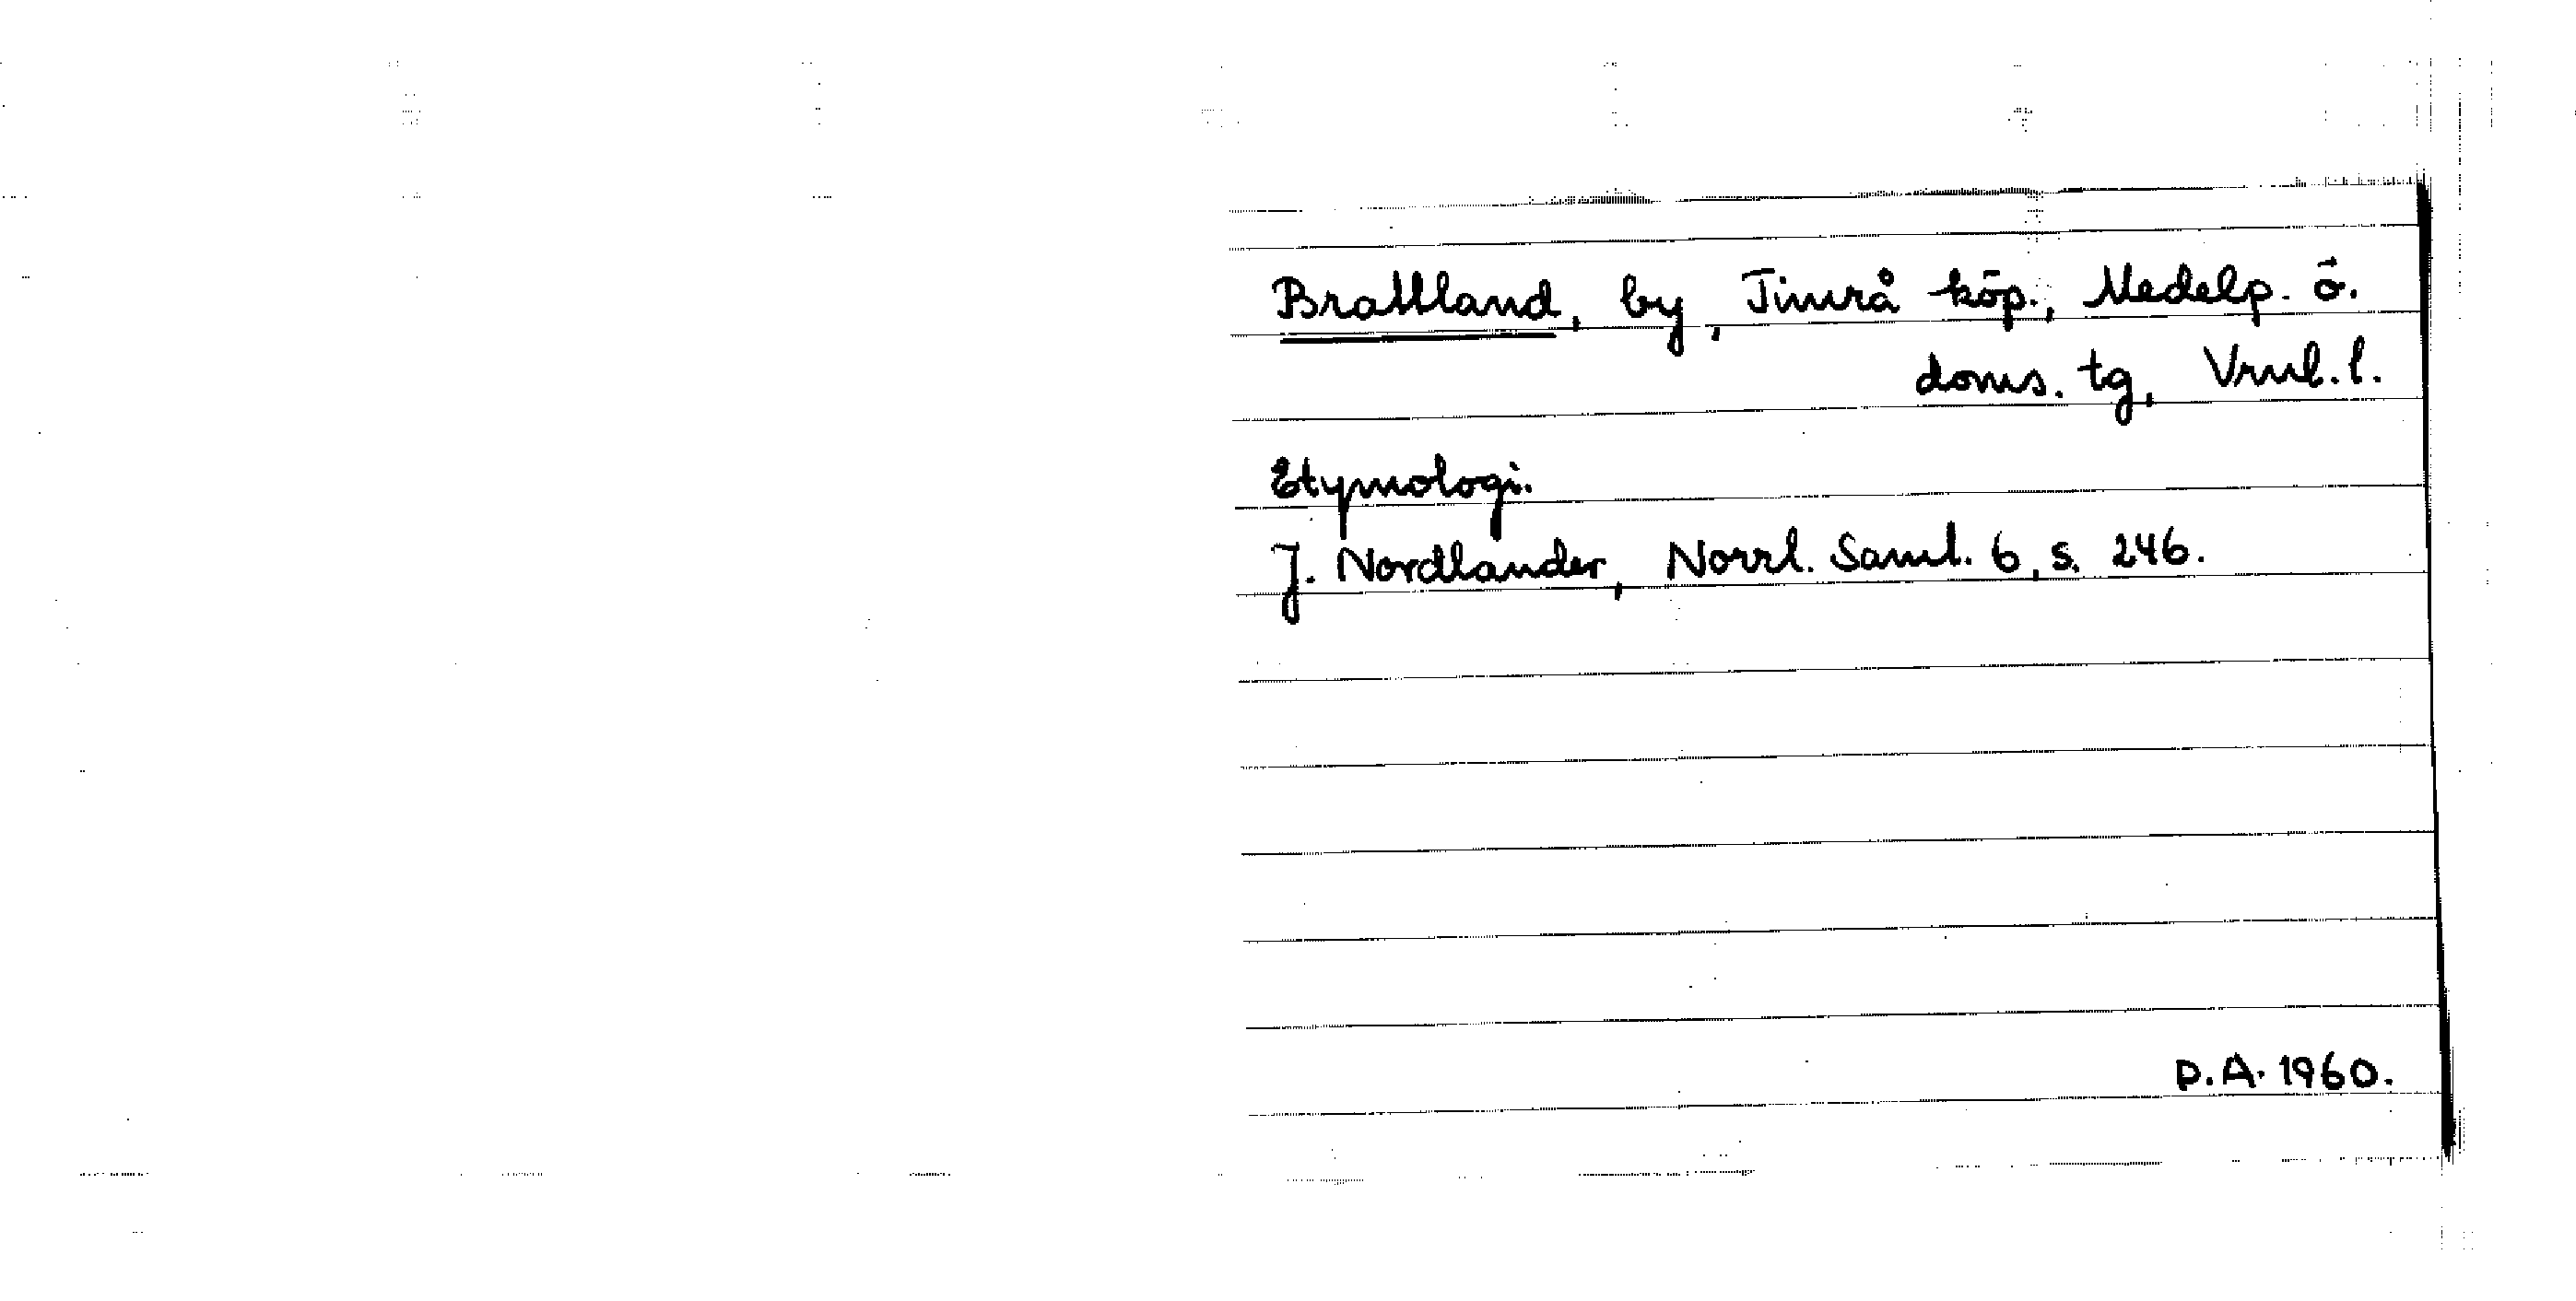 Brattland, by, Timrå köp., Medelp. ö.
doms. tg, Vrnl. l.
Etymologi.
J. Nordlander, Norrl. Saml. 6, s. 246.
P.A. 1960.